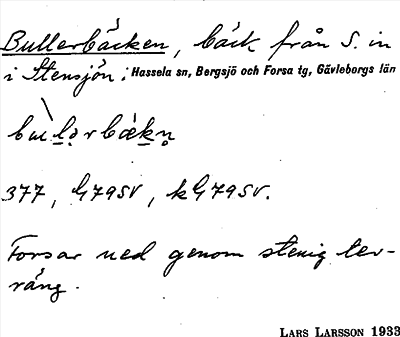 Bullerbäcken, bäck från S. in
i Stensjön; Hassela sn, Bergsjö och Forsa tg, Gävleborgs län
377, G79SV, kG79SV.
Forsar ned genom stenig ter-
räng.
LARS LARSSON 1933